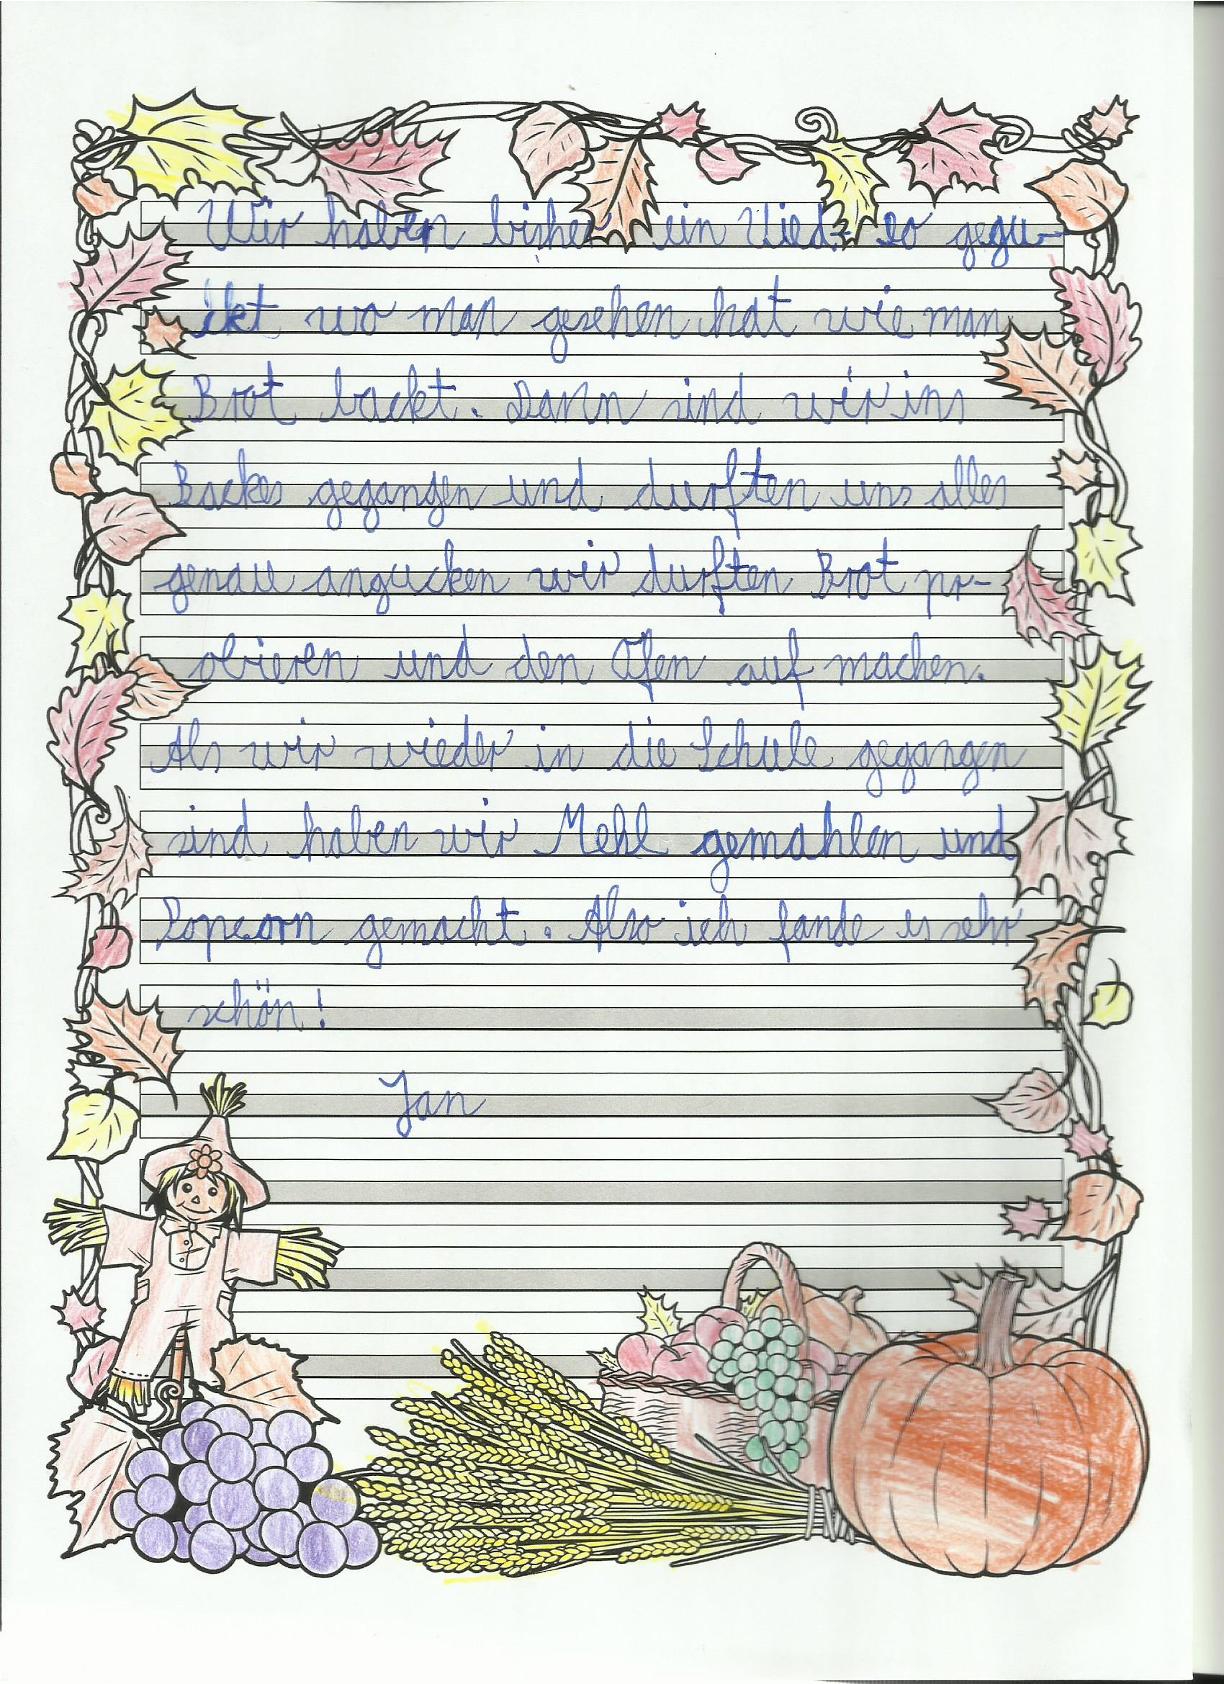 Wir haben bisher ein Vied- eo gegu-
ckt wo man gesehen hat wie man
Brot backt. Dann sind wir ins
Backes gegangen und durften uns alles
genau angucken wir durften Brot pr-
obieren und den Ofen auf machen.
Als wir wieder in die Schule gegangen
sind haben wir Mehl gemahlen und
Popcorn gemacht. Also ich fande es sehr
schön!
Jan